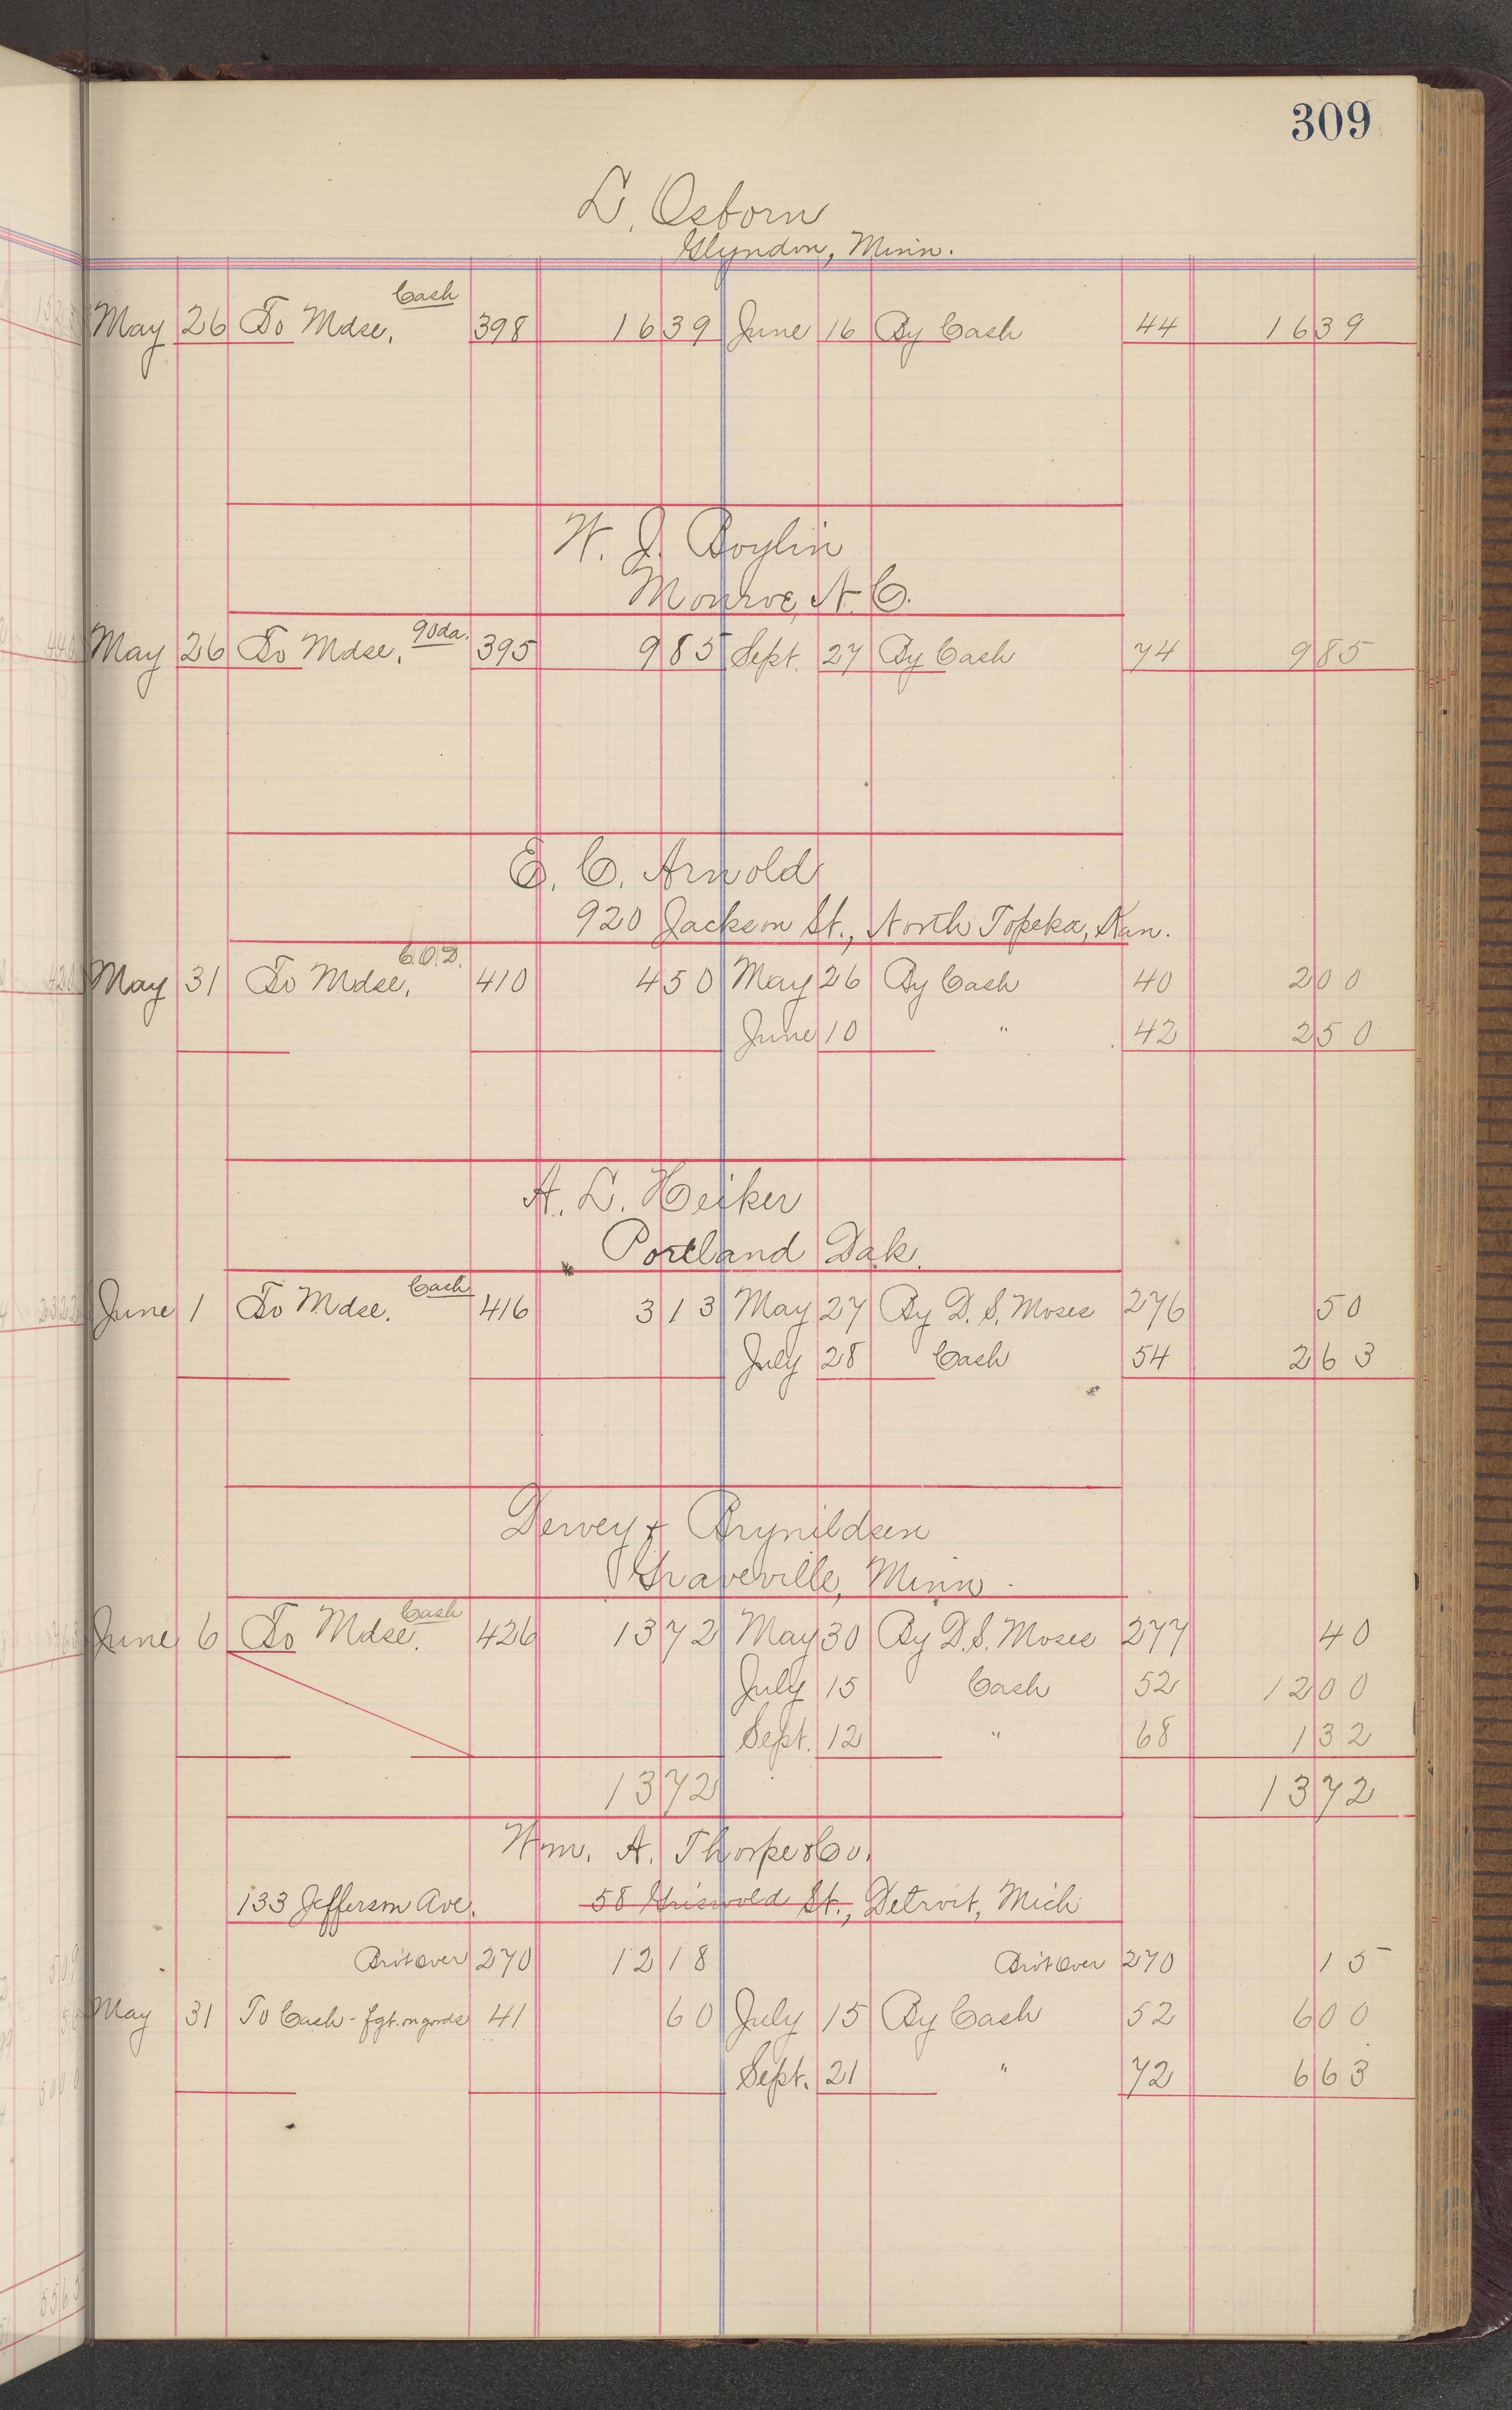 309
L. Osborn
Glyndon, Minn.
May 26 To Mdse. Cash 398 16 39 June 16 By Cash 44 16 39
W. J. Boylin
Monroe, N. C.
May 26 To Mdse. 90da. 395 9 85 Sept. 27 By Cash 74 9 85
E. C. Arnold
920 Jackson St., North Topeka, Kan.
May 31 To Mdse. C.O.D. 410 4 50 May 26 By Cash 40 2 00
June 10 " 42 2 50
A. L. Heiker
Portland Dak.
June 1 To Mdse. Cash 416 3 13 May 27 By D. S. Moses 276 50
July 28 Cash 54 2 63
Dewey & Brynildsen
Graceville, Minn.
June 6 To Mdse. Cash 426 13 72 May 30 By D. S. Moses 277 40
July 15 Cash 52 12 00
Sept. 12 " 68 1 32
13 72 13 72
Wm. A. Thorpe & Co.
133 Jefferson Ave. 58 Griswold St., Detroit, Mich
Bro't Over 270 12 18 Bro't Over 270 15
May 31 To Cash - fgt. on goods 41 60 July 15 By Cash 52 6 00
Sept. 21 " 72 6 63